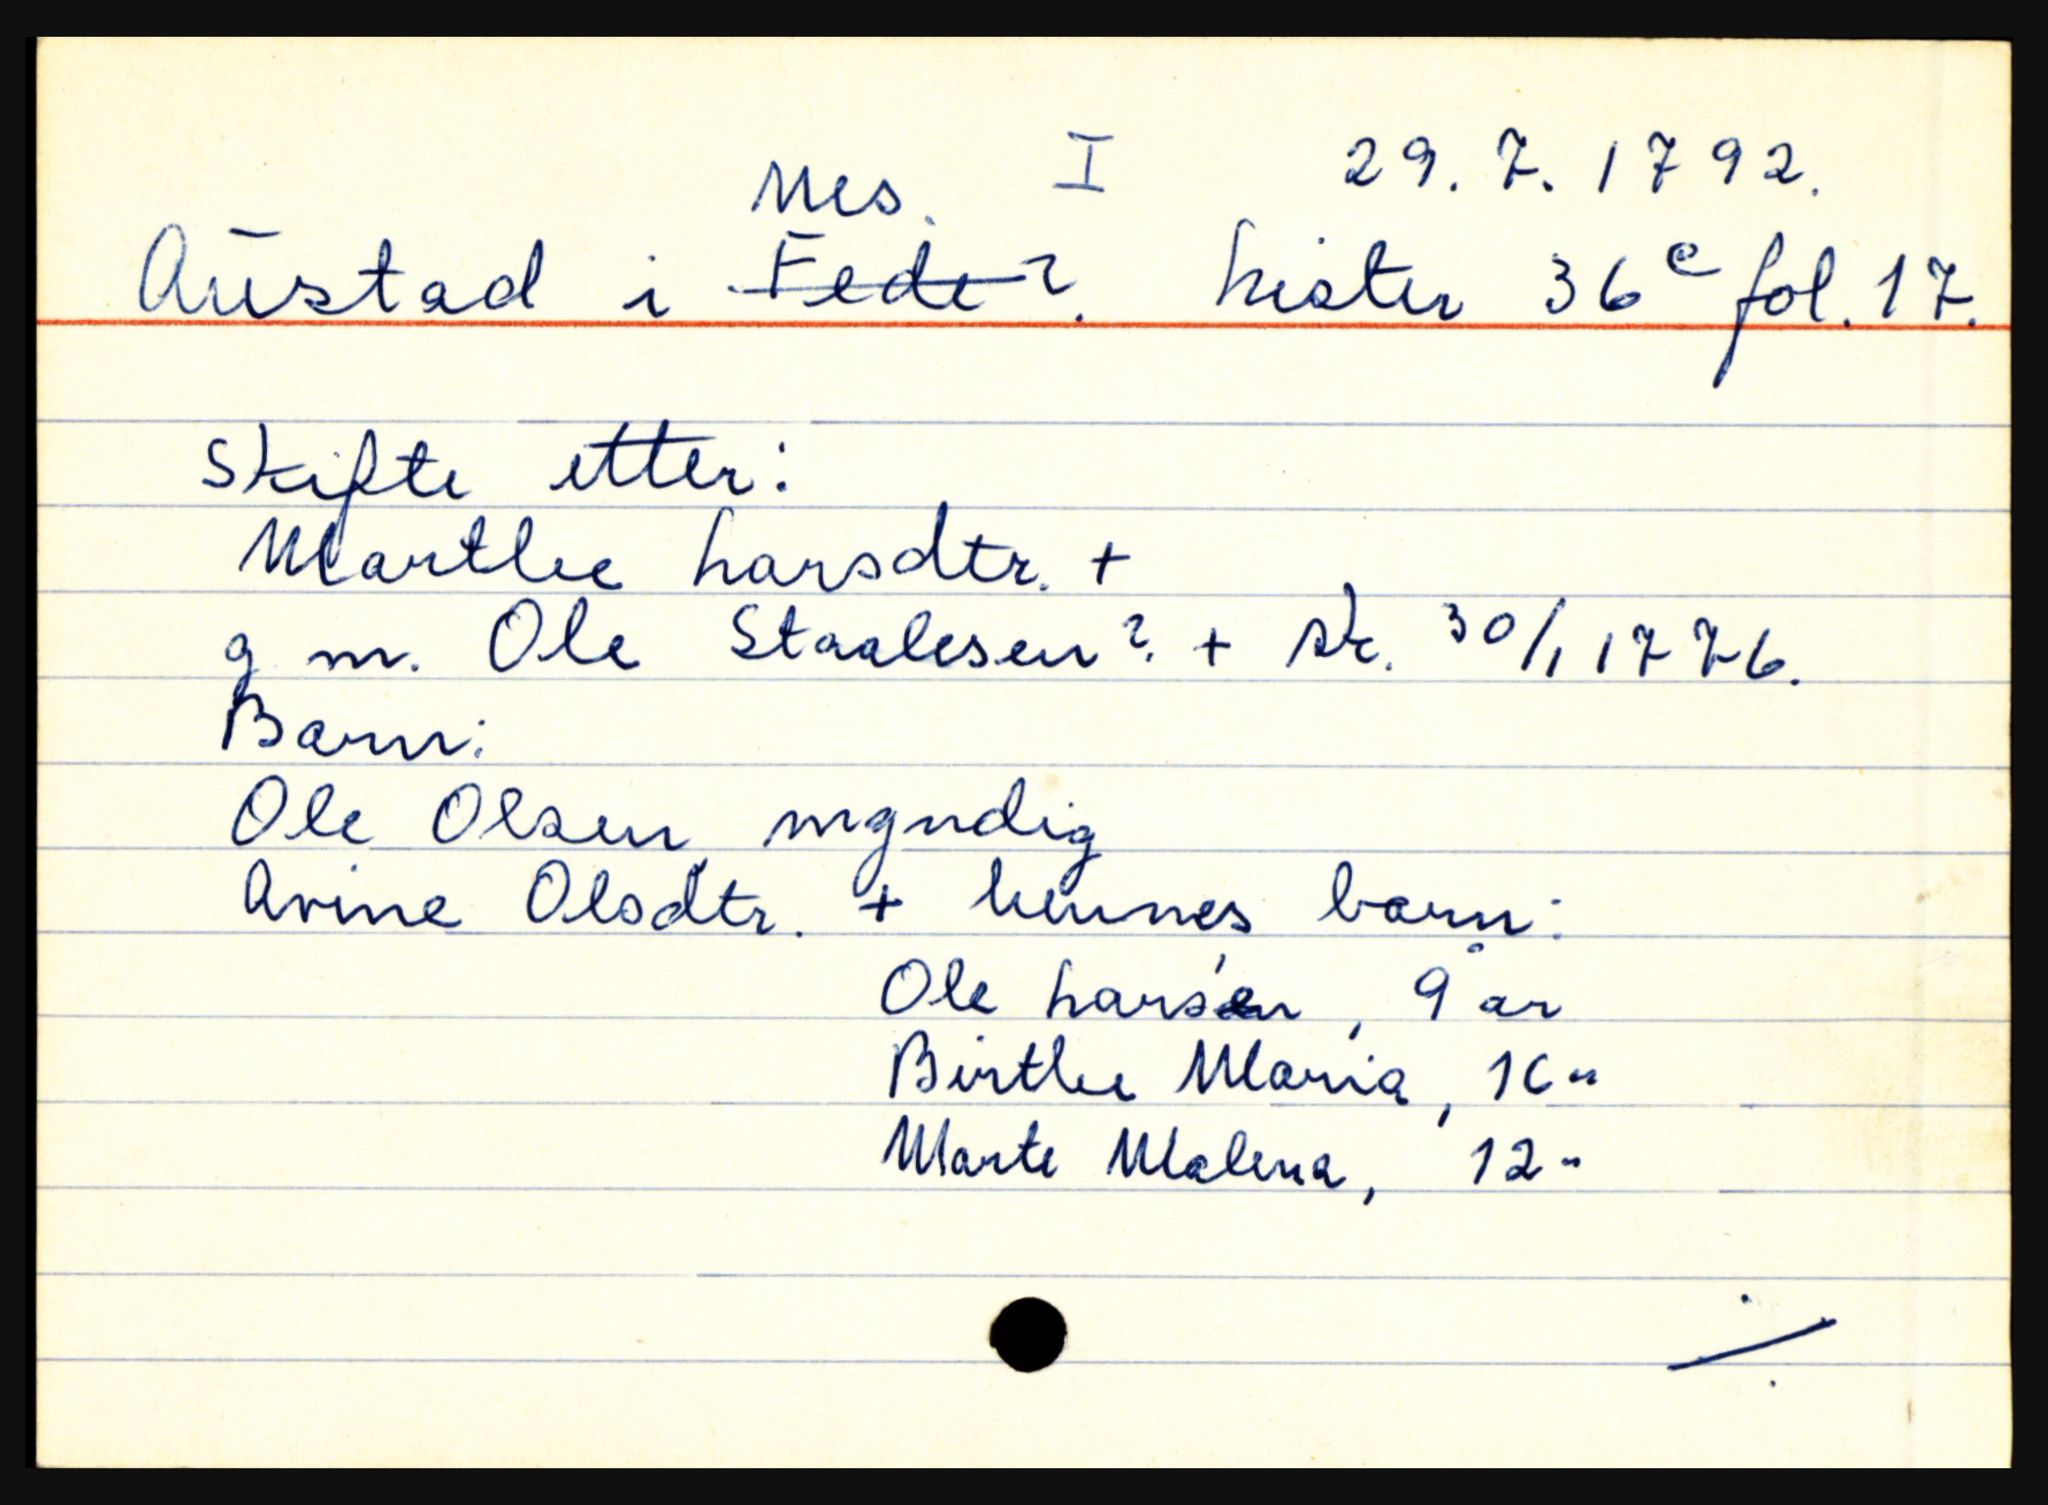 Nes. I 29.7.1792.
Austad i Fede?. Lister 36c fol. 17.
Skifte etter:
Marthe Larsdtr. +
g m. Ole Staalesen? + sk. 30/1 1776.
Barn:
Ole Olsen myndig
Avine Olsdtr. + hennes barn:
Ole Larsen, 9 år
Birthe Maria, 16 "
Marte Malena, 12 "